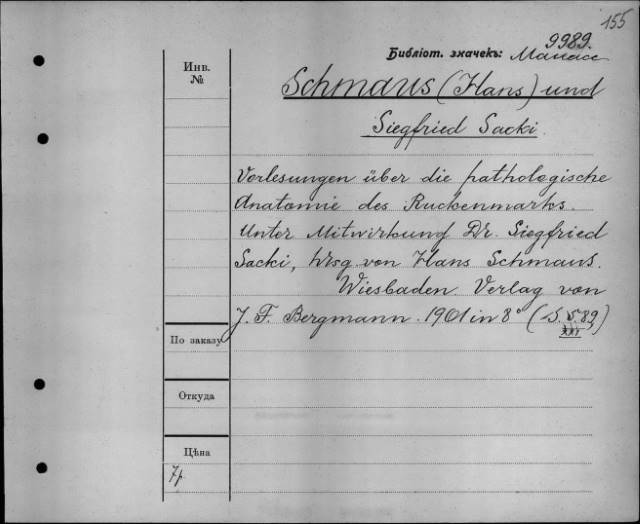 155
9989.
Библіот. значекъ:
Инв.
№
Schmaus (Hans) und
Siegfried Sacki.
Vorlesungen über die pathologische
Anatomie des Ruckenmarks.
Unter Mitwirkung Dr. Siegfried
Sacki, hrsg. von Hans Schmaus.
Wiesbaden. Verlag von
J. F. Bergmann. 1901 in 8° (S. 589)
По заказу
Откуда
Цѣна
7р.